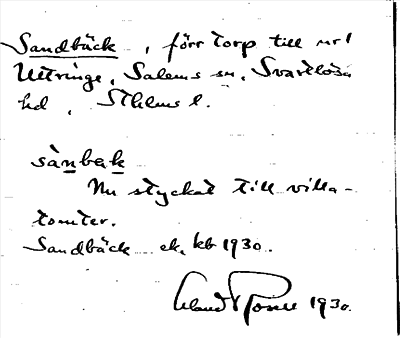 Sandbäck, förr torp till nr 1
Uttringe, Salems sn, Svartlösa
hd, Sthlms l.
sànbäk
Nu styckat till villa-
tomter.
Sandbäck ek. kb 1930.
1930.